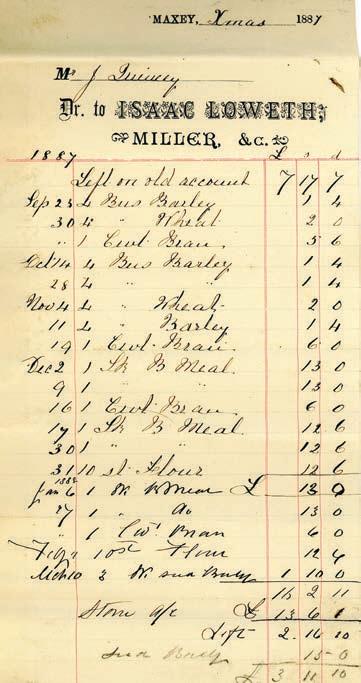 MAXEY, Xmas 1887
Mr J Quincey
Dr. to ISAAC LOWETH,
MILLER, &C.
1887 £ s d
Left on old account 7 17 7
Sep 23 4 Bus Barley 1 4
30 4 " Wheat 2 0
" 1 Cwt Bran 5 6
Oct 14 4 Bus Barley 1 4
28 4 " " 1 4
Nov 4 4 " Wheat 2 0
11 4 " Barley 1 4
19 1 Cwt Bran 6 0
Dec 2 1 Sk B Meal 13 0
9 1 " " 13 0
16 1 Cwt Bran 6 0
17 1 Sk B Meal 12 6
30 1 " " 12 6
31 10 st Flour 12 6
1888
Jan 6 1 Sk B Meal £ 13 0
27 1 Do 13 0
" 1 Cwt Bran 6 0
10 st Flour 12 6
Mch 10 3 1 10 0
16 2 11
Stone a/c £ 13 6 1
Left 2 16 10
Barly 15 0
£ 3 11 10